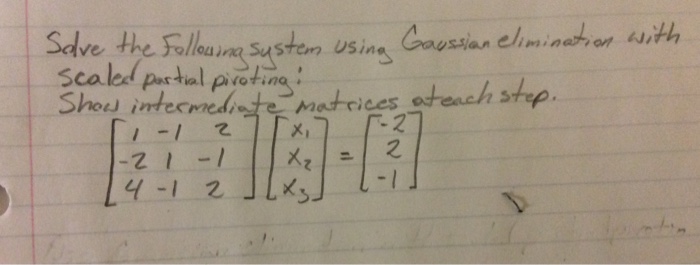 Solve the following system using Gaussian elimination with
scaled partial pivoting:
Show intermediate matrices at each step.
[ 1 -1 2 ] [ x₁ ] = [ -2 ]
[ -2 1 -1 ] [ x₂ ] = [ 2 ]
[ 4 -1 2 ] [ x₃ ] [ -1 ]